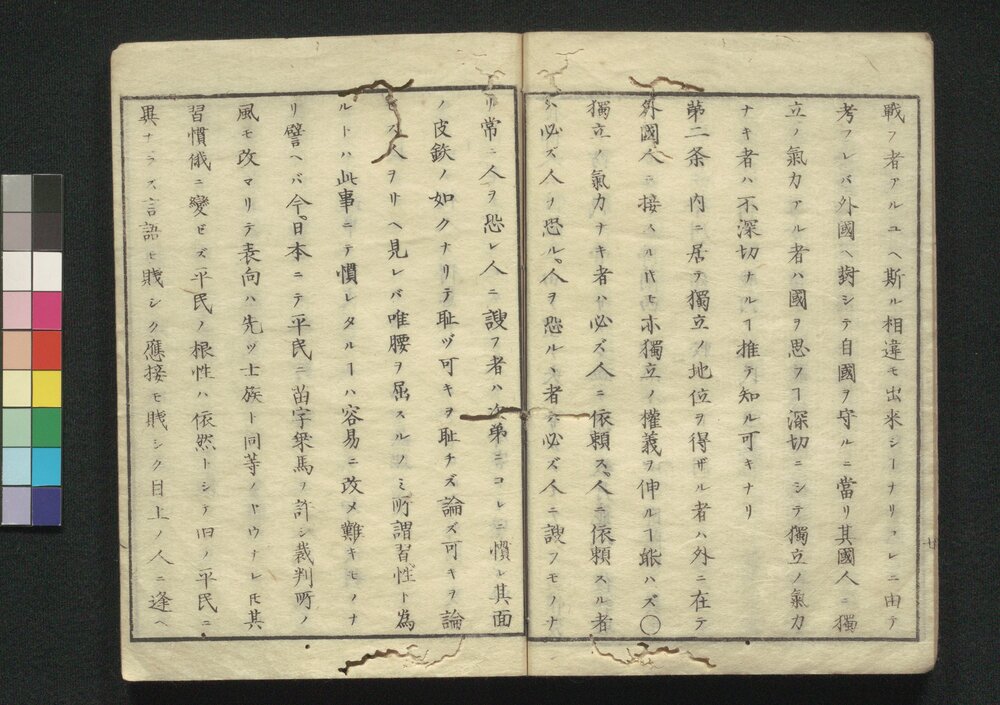 戦フ者アルユヘ斯ル相違モ出来シヿナリコレニ由テ
考フレバ外國ヘ對シテ自國ヲ守ルニ當リ其國人ニ獨
立ノ氣力アル者ハ國ヲ思フヿ深切ニシテ獨立ノ氣力
ナキ者ハ不深切ナルヿ推テ知ル可キナリ
第二条 内ニ居テ獨立ノ地位ヲ得ザル者ハ外ニ在テ
外國人ニ接スル𪜈モ亦獨立ノ權義ヲ伸ルヿ能ハズ〇
獨立ノ氣力ナキ者ハ必ズ人ニ依頼ス。人ニ依頼スル者
ハ必ズ人ヲ恐ル。人ヲ恐ルヽ者ハ必ズ人ニ諛フモノナ
リ常ニ人ヲ恐レ人ニ諛フ者ハ次第ニコレニ慣レ其面
ノ皮鉄ノ如クナリテ耻ヅ可キヲ耻チズ論ズ可キヲ論
ゼス人ヲサヘ見レバ唯腰ヲ屈スルノミ所謂習性ト為
ルトハ此事ニテ慣レタルヿハ容易ニ改メ難キモノナ
リ譬ヘバ今。日本ニテ平民ニ苗字乗馬ヲ許シ裁判所ノ
風モ改マリテ表向ハ先ツ士族ト同等ノヤウナレ𪜈其
習慣俄ニ變ゼズ平民ノ根性ハ依然トシテ旧ノ平民ニ
異ナラズ言語モ賎シク應接モ賎シク目上ノ人ニ逢ヘ